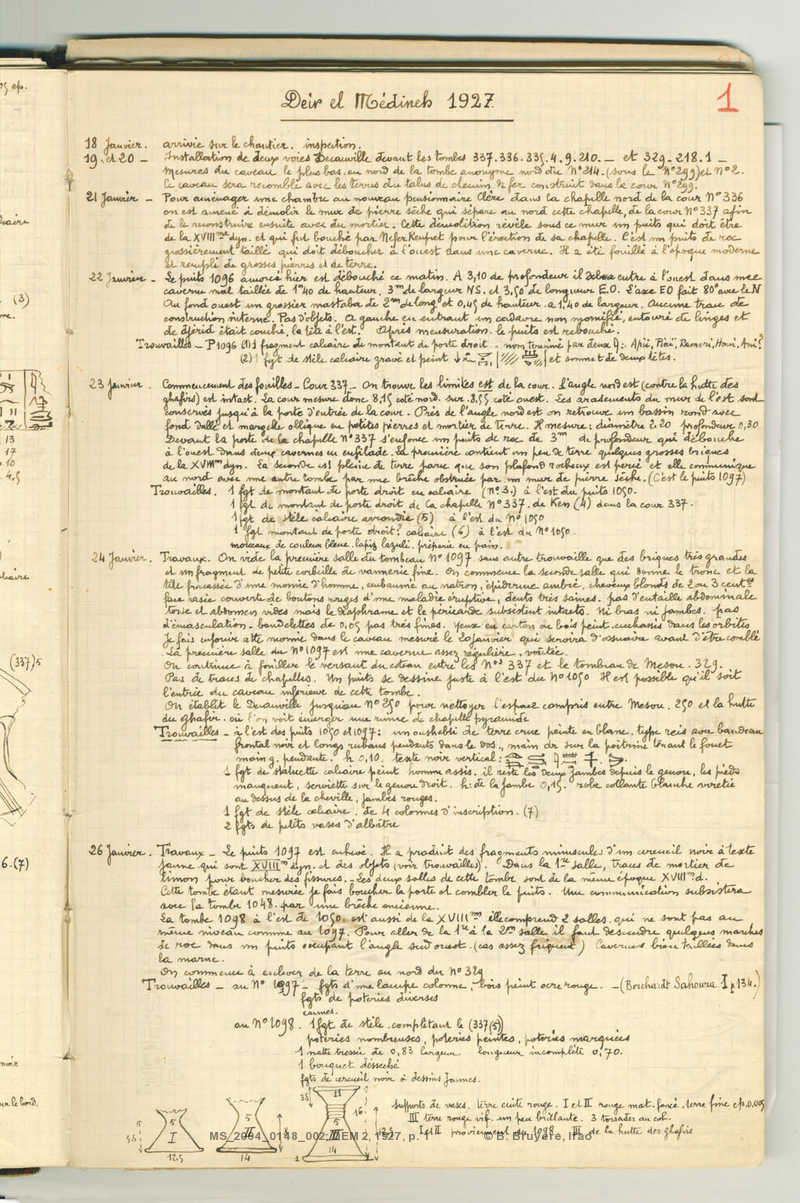 Deir el Médineh 1927
1
18 Janvier. arrivée sur le chantier. inspection.
19. et 20 - Installation de deux voies Decauville devant les tombes 337.336.335.4.9.210. — et 329-218.1 —
Mesures du caveau le plus bas au nord de la tombe anonyme nord du N°214. (sous le N°299) et N°2.
le caveau sera recomblé avec les terres du talus de chemin de fer construit dans la cour N°299.
21 Janvier - Pour aménager une chambre au nouveau pensionnaire Clère dans la chapelle nord de la cour N°336
on est amené à démolir le mur de pierre sèche qui sépare au nord cette chapelle, de la cour N°337 afin
de le reconstruire ensuite avec du mortier. Cette démolition révèle sous ce mur un puits qui doit être
de la XVIIIme dyn. et qui fut bouché par Nefer Renpet pour l'érection de sa chapelle. C'est un puits de roc
grossièrement taillé qui doit déboucher à l'ouest dans une caverne. Il a été fouillé à l'époque moderne
et rempli de grosses pierres et de terre.
22 Janvier - Le puits 1096 amorcé hier est débouché ce matin. A 3,10 de profondeur il entre à l'ouest dans une
caverne mal taillée de 1m40 de hauteur, 3m de largeur NS. et 3,50 de longueur E.O. L'axe EO fait 80° avec le N
Au fond ouest un grossier mastaba de 2m de long et 0,45 de hauteur. a 1.40 de largeur. Aucune trace de
construction interne. Pas d'objets. A gauche en entrant un cadavre non momifié, entouré de linges et
de djérid était couché, la tête à l'est. Après mensuration le puits est rebouché.
Trouvailles - P1096 (1) 1 fragment calcaire de montant de porte droit.
(2) 1 fgt de stèle calcaire gravé et peint et sommet de deux têtes.
23 Janvier. Commencement des fouilles - Cour 337. - On trouve les limites est de la cour. L'angle nord est (contre la hutte des
ghafirs) est intact. La cour mesure donc 8,15 coté nord. sur 8.55 coté ouest. Les arasements du mur de l'est sont
conservés jusqu'à la porte d'entrée de la cour. Près de l'angle nord est on retrouve un bassin rond avec
fond dallé et margelle oblique en petites pierres et mortier de terre. Il mesure: diamètre 1.20 profondeur 0,30
Devant la porte de la chapelle N°337 s'enfonce un puits de roc de 3m de profondeur qui débouche
à l'ouest dans deux cavernes en enfilade. La première contient un peu de terre quelques grosses briques
de la XVIIIme dyn. La seconde est pleine de terre parce que son plafond rocheux est percé et elle communique
au nord avec une autre tombe par une brèche obstruée par un mur de pierre sèche. (C'est le puits 1097)
Trouvailles. 1 fgt de montant de porte droit en calcaire (n° 3.) à l'est du puits 1050.
1 fgt de montant de porte droit de la chapelle N°337. de Ken (4) dans la cour 337.
1 fgt de stèle calcaire arrondie (5) à l'est du N° 1050
1 fgt montant de porte droit? calcaire (6) à l'est du N° 1050.
morceaux de couleur bleue. lapis lazuli. préparée en pains.
24 Janvier. Travaux. On vide la première salle du tombeau N°1097 sans autre trouvaille que des briques très grandes
et un fragment de petite corbeille de vannerie fine. On commence la seconde salle qui donne le tronc et la
tête fracassée d'une momie d'homme, embaumée au natron, épiderme ambré, cheveux blonds de 2 ou 3 centes
face rasée couverte de boutons rouges d'une maladie éruptive, dents très saines. pas d'entaille abdominale
torse et abdomen vides mais le diaphrame et le péricarde subsistent intacts. Ni bras ni jambes. pas
d'émasculation. bandelettes de 0,05 pas très fines. Yeux en carton ou bois peint enchassés dans les orbites
Je fais enfouir cette momie dans le caveau mesuré le 20 janvier qui servira d'ossuaire avant d'être comblé
La première salle du N°1097 est une caverne assez régulière, voûtée.
On continue à fouiller le versant du coteau entre les Nos 337 et le tombeau de Mesou. 329.
Pas de traces de chapelles. Un puits se dessine juste à l'est du N°1050 Il est possible qu'il soit
l'entrée du caveau inférieur de cette tombe.
On établit le Decauville jusqu'au N°250 pour nettoyer l'espace compris entre Mesou. 250 et la hutte
du ghafir. où l'on voit émerger une ruine de chapelle pyramide
Trouvailles - à l'est des puits 1050 et 1097: un oushebti de terre crue peinte en blanc. type reis avec bandeau
frontal noir et longs rubans pendants dans le dos., main dr sur la poitrine tenant le fouet
main g. pendante. h 0,10. texte noir vertical:
1 fgt de statuette calcaire peint homme assis. il reste les deux jambes depuis le genou, les pieds
manquent, serviette sur le genou droit. h: de la jambe 0,15. robe collante blanche arrêtée
au dessus de la cheville, jambes rouges.
1 fgt de stèle calcaire. de 4 colonnes d'inscription. (7)
2 fgts de petits vases d'albâtre
26 Janvier. Travaux - Le puits 1097 est achevé. Il a produit des fragments minuscules d'un cercueil noir à texte
jaune qui sont XVIIIme dyn. et des objets (voir trouvailles). Dans la 1re salle, traces de mortier de
limon pour boucher des fissures. - Les deux salles de cette tombe sont de la même époque XVIIIme d.
Cette tombe étant mesurée je fais boucher la porte et combler le puits. Une communication subsistera
avec la tombe 1048. par une brèche ancienne.
La tombe 1098 à l'est de 1050. est aussi de la XVIIIme elle comprend 2 salles. qui ne sont pas au
même niveau comme au 1097. Pour aller de la 1re à la 2me salle il faut descendre quelques marches
de roc dans un puits occupant l'angle sud ouest. (cas assez fréquent) Cavernes bien taillées dans
la marne.
On commence à enlever de la terre au nord du N° 329
Trouvailles - au N° 1097 - fgts d'une lampe colonne, bois peint ocre rouge. - (Borchardt Sahoura I p 134.)
fgts de poteries diverses
cannes.
au N°1098. 1 fgt de stèle complétant le (337(5))
poteries nombreuses, poteries peintes, poteries marquées
1 natte tressée de 0,83 largeur longueur incomplète 0,70.
1 bouquet desséché
fgts de cercueil noir à dessins jaunes.
supports de vases. terre cuite rouge. I et II rouge mat. foncé, terre fine ep.0.005
III terre rouge vif. un peu brillante. 3 torsades au col.
I et II proviennent du 1098. III de la hutte des ghafirs
5 I 12.5
5 II 14
11 III 14
16
MS_2004_0148_002; DEM 2, 1927, p. © B. Bruyère, Ifao